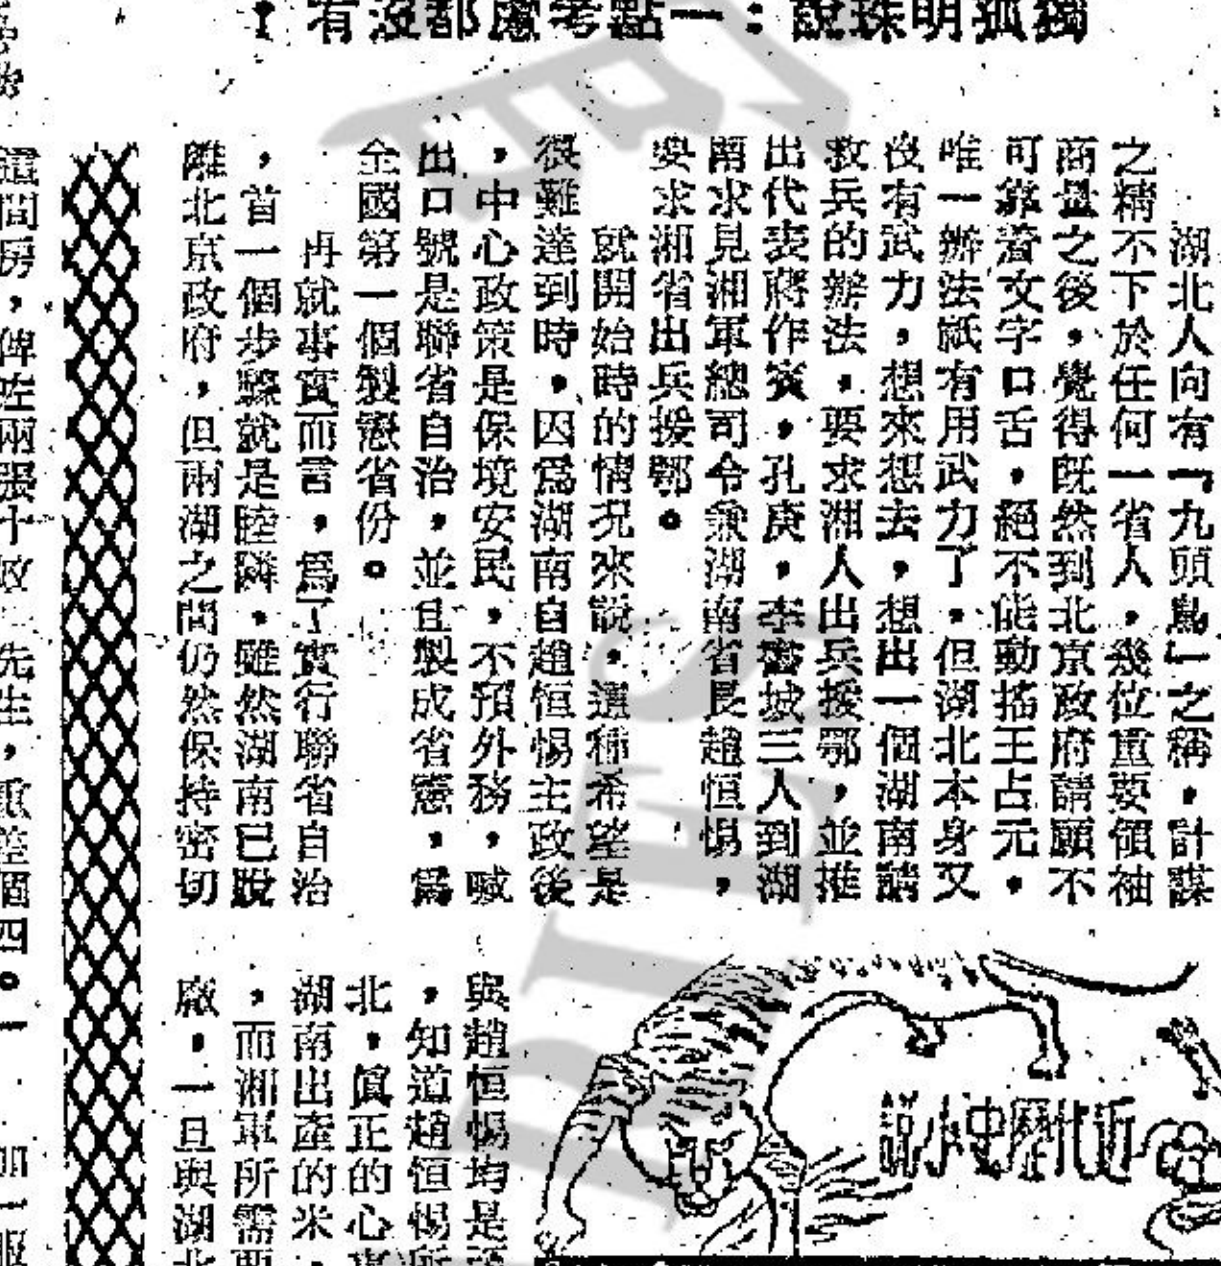 獨狐明珠說：一點考慮都沒有！
湖北人向有「九頭鳥」之稱，計謀
之精不下於任何一省人，幾位重要領袖
商量之後，覺得既然到北京政府請願不
可靠着文字口舌，絕不能動搖王占元，
唯一辦法祇有用武力了，但湖北本身又
沒有武力，想來想去，想出一個湖南請
救兵的辦法，要求湘人出兵援鄂，並推
出代表蔣作賓，孔庚，李書城三人到湖
南求見湘軍總司令兼湖南省長趙恒惕，
要求湘省出兵援鄂。
就開始時的情況來說，這種希望是
很難達到時，因爲湖南自趙恒惕主政後
，中心政策是保境安民，不預外務，喊
出口號是聯省自治，並且製成省憲，爲
全國第一個製憲省份。
再就事實而言，爲了實行聯省自治
，首一個步驟就是睦隣，雖然湖南已脫
離北京政府，但兩湖之間仍然保持密切
近代歷史小說
與趙恒惕均是
，知道趙恒惕所
北，眞正的心
湖南出產的米，
，而湘軍所需要
廠，一旦與湖北
這間房，
兩張十
先生，
個四。一
加一